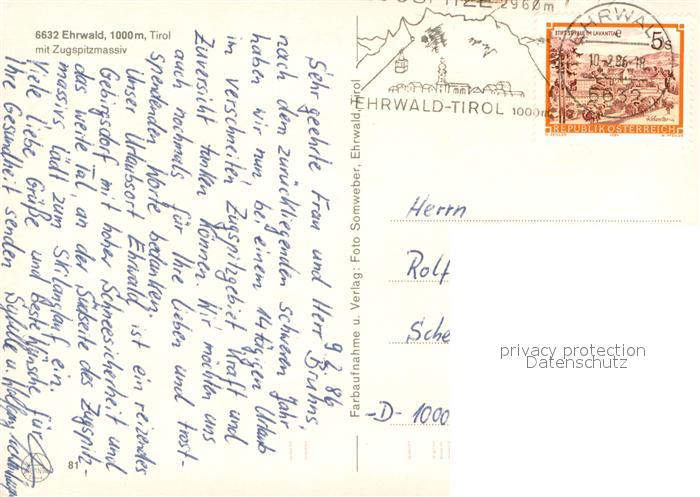 6632 Ehrwald, 1000 m, Tirol
mit Zugspitzmassiv
2960 m
EHRWALD-TIROL 1000m
EHRWALD
10.-2.86-18
STIFT ST. PAUL IM LAVANTTAL
5s
REPUBLIK ÖSTERREICH
9.2.86
Sehr geehrte Frau und Herr Bruhns,
nach den zurückliegenden schweren Jahr
haben wir nun bei einem 14tägigen Urlaub
im verschneiten Zugspitzgebiet Kraft und
Zuversicht tanken können. Wir möchten uns
auch nochmals für Ihre lieben und trost-
spendenden Worte bedanken.
Unser Urlaubsort Ehrwald ist ein reizendes
Gebirgsdorf mit hoher Schneesicherheit und
das weite Tal, an der Südseite des Zugspitz-
massivs, lädt zum Skilanglauf ein.
Viele liebe Grüße und beste Wünsche für
Ihre Gesundheit senden Sybille u. Wolfgang
81
Farbaufnahme u. Verlag: Foto Somweber, Ehrwald, Tirol
Herrn
Rolf
Sche
-D- 1000
privacy protection
Datenschutz